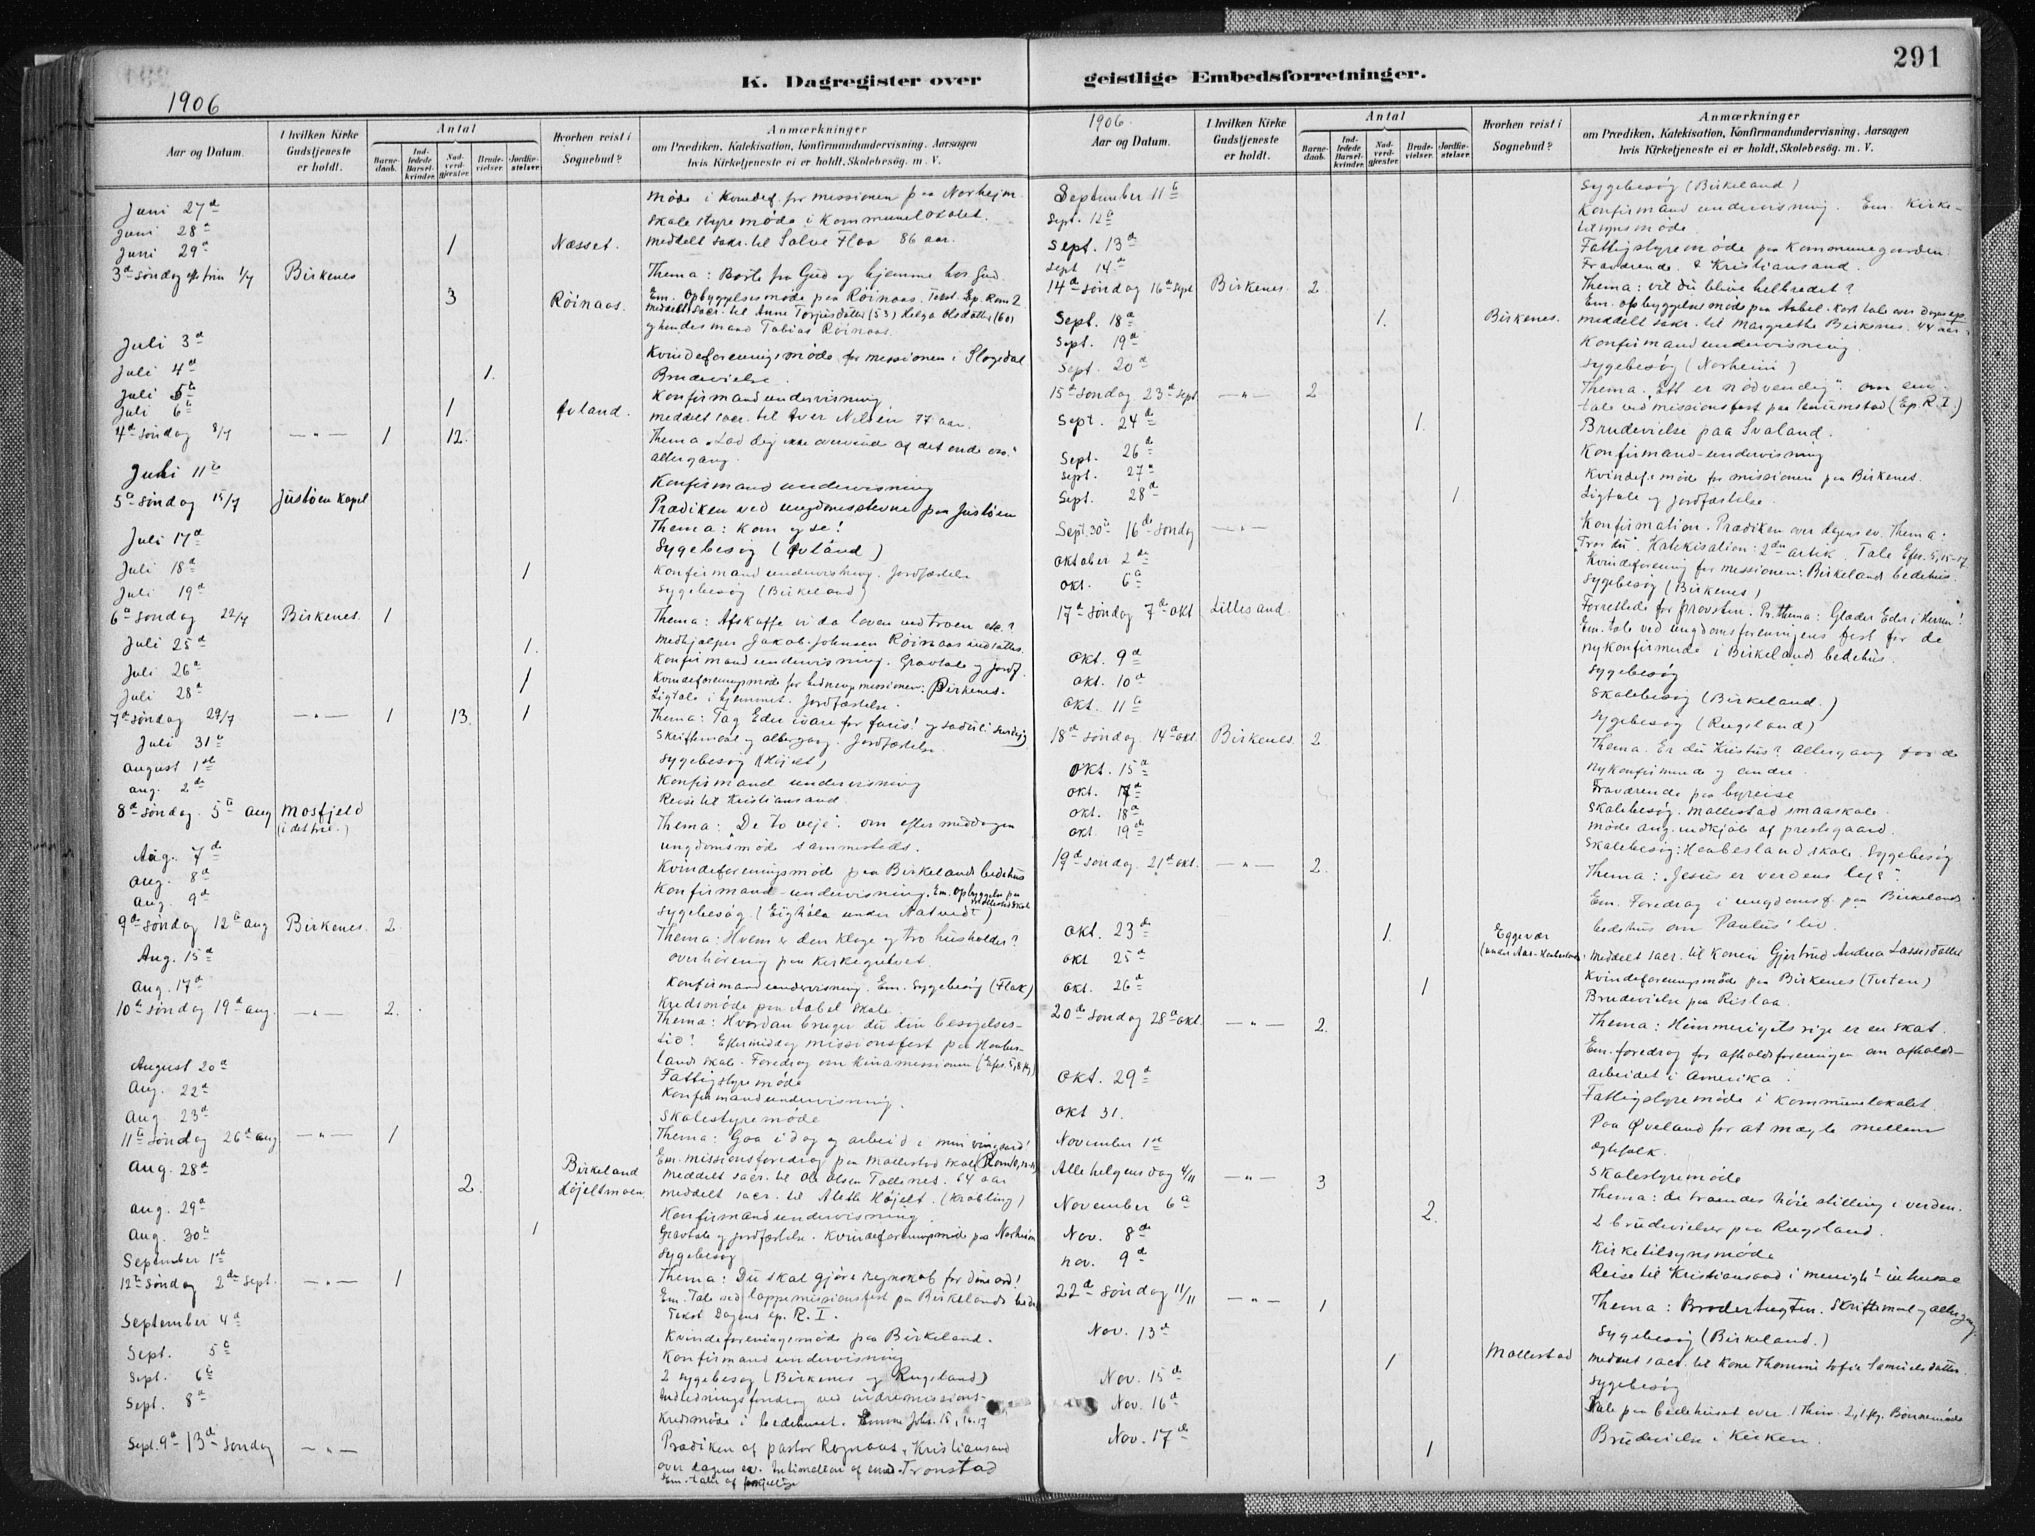 291
K. Dagregister over geistlige Embedsforretninger.
1906
Aar og Datum.
I hvilken Kirke Gudstjeneste er holdt.
Antal
Barnedaab.
Indledede Barselkvinder.
Nadverdgjester.
Brudevielser.
Jordfæstelser.
Hvorhen reist i Sognebud?
Anmærkninger
om Prædiken, Katekisation, Konfirmandundervisning, Aarsagen
hvis Kirketjeneste ei er holdt, Skolebesög. m. V.
Juni 27de møde i Kvindef. for missionen paa Norheim.
Juni 28de Skolestyremöde i Kommunelokalet.
Juni 29de 1 Næsset. meddelt sakr. til Salve Flaa 86 aar.
3de söndag eft trin 1/7 Birkenes Thema: Borte fra Gud og hjemme hos Gud.
3 Röinaas. Em. Opbyggelsesmöde paa Röinaas. Tekst. Ep. Rom 2
meddelt sacr. til Anne Torjusdatter (53) Helga Olsdatter (60)
og hendes mand Tobias Röinaas.
Juli 3de Kvindeforeningsmöde for missionen i Slogedal
Juli 4de 1. Brudevielse.
Juli 5te Konfirmandundervisning
Juli 6te 1 Øvland. meddelt sacr. til Iver Nilsen 77 aar.
4de söndag 8/7 — " — 1 12. Thema "Lad dig ikke overvinde af det onde osv."
altergang.
Juli 11te Konfirmandundervisning
5te söndag 15/7 Justöen Kapel Prædiken ved ungdomsstevne paa Justöen
Thema: Kom og se!
Juli 17de Sygebesög (Øvland)
Juli 18de 1 Konfirmandundervisning. Jordfæstelse
Juli 19de Sygebesög (Birkeland)
6te söndag 22/7 Birkenes 1 Thema: Afskaffe vi da loven ved troen etc.?
Juli 25de 1. Medhjælper Jakob Johnsen Röinaas indsattes.
Juli 26de 1 Konfirmandundervisning. Gravtale og Jordf.
Juli 28de 1 Kvindeforeningsmöde for hedningemissionen: Birkenes.
Ligtale i hjemmet. Jordfæstelse.
7de söndag 29/7 — " — 1 13. 1 Thema: Tag Eder ivare for faris!
Skriftemaal og altergang. Jordfæstelse.
Juli 31te Sygebesög (Höjelt)
august 1ste Konfirmandundervisning
aug. 2de Reise til Kristiansand.
8de söndag. 5te aug Mosfjeld (i det frie.) Thema: "De to veje". om eftermiddagen
ungdomsmöde sammesteds.
Aug. 7de Kvindeforeningsmöde paa Birkelands bedehus
aug. 8de Konfirmand-undervisning. Em. Opbyggelse paa Mollestad skole
aug. 9de Sygebesög.
9de söndag 12te aug Birkenes. 2 Thema: Hvem er den kloge og tro husholder?
overhöring paa kirkegulvet.
Aug. 15de Konfirmandundervisning. Em. Sygebesög (Flak)
Aug. 17de Kredsmöde paa Aabel skole
10de söndag 19de aug. — " — 2. Thema: Hvordan bruger du din besögelses-
tid? Eftermiddag missionsfest paa Haabes-
lands skole. Foredrag om Kinamissionen (Efes. 5, 8 flg)
August 20de Fattigstyremöde
Aug. 22de Konfirmandundervisning.
Aug. 23de Skolestyremöde
11te söndag 26de aug — " — 1 Thema: Gaa i dag og arbeid i min vingaard!
Em. missionsforedrag paa Mollestad skole
Aug. 28de 2. Birkeland Höjeltmoen. meddelt sacr. til Ole Olsen Tollenes. 64 aar
meddelt sacr. til Aleth Höjelt.
aug. 29de Konfirmandundervisning
Aug. 30te 1 Gravtale og jordfæstelse. Kvindeforeningsmöde paa Norheim
September 1ste Sygebesög
12te Söndag 2den Sept. — " — 1 Thema: Du skal gjöre regnskab for dine ord!
Em. Tale ved lappemissionsfest paa Birkelands bedeh
Tekst Dagens ep. R. I.
September 4de Kvindeforeningsmöde paa Birkeland.
Sept. 5te Konfirmandundervisning
Sept. 6te 2 sygebesög (Birkenes og Rugsland)
Sept. 8de Indledningsforedrag ved indremissions-
kredsmöde i bedehuset. Emne Johs. 15, 16.17
Sept. 9de 13de Söndag — " — Prædiken af pastor Rognaas, Kristiansand
over dagens ev. Intimation af Tronstad
1906.
Aar og Datum.
I hvilken Kirke Gudstjeneste er holdt.
Antal
Barnedaab.
Indledede Barselkvinder.
Nadverdgjester.
Brudevielser.
Jordfæstelser.
Hvorhen reist i Sognebud?
Anmærkninger
om Prædiken, Katekisation, Konfirmandundervisning, Aarsagen
hvis Kirketjeneste ei er holdt, Skolebesög. m. V.
September 11te Sygebesög (Birkeland)
Sept. 12te Konfirmandundervisning. Em. Kirke-
tilsynsmöde
Sept. 13de Fattigstyremöde paa Kommunegaarden
Sept 14de Fraværende. Kristiansand.
14de söndag 16de Sept Birkenes 2. Thema: vil du blive helbredet?
Em. opbyggelsesmöde paa Aabel. Kort tale over dagens ep
Sept. 18de 1. Birkenes. meddelt sakr. til Margrethe Birkenes. 44 aar.
Sept. 19de Konfirmandundervisning.
Sept. 20de Sygebesög (Norheim)
15de Söndag 23de Sept — " — 2 Thema. "Ett er nödvendig". om em.
tale ved missionsfest paa (Ep. R. I.)
Sept. 24de 1. Brudevielse paa Svaland.
Sept. 26de Konfirmand-undervisning
Sept. 27de Kvindef.möde for missionen paa Birkenes.
Sept. 28de 1 Ligtale og Jordfæstelse
Sept 30te 16de Söndag — " — Konfirmation. Prædiken over dagens ev. Thema:
"Tror du". Katekisation: 2den artik. Tale Efes. 5, 15-17.
oktober 2den Kvindeforening for missionen: Birkelands bedehus.
okt. 6te Sygebesög (Birkenes)
17de söndag 7de okt Lillesand. Forrettede for provsten. Pr. thema: Glæder Eder i Herren!
Em. tale ved ungdomsforeningens fest for de
nykonfirmerede i Birkelands bedehus.
Okt. 9de Sygebesög
okt. 10de Skolebesög (Birkeland.)
okt. 11te Sygebesög (Rugsland)
18de söndag. 14de okt. Birkenes. 2 Thema. Er du Kristus? Altergang for de
nykonfirmerede og andre.
okt. 15de Fraværende paa byreise
okt. 17de Skolebesög. Mollestad smaaskole.
okt. 18de Möde ang. indkjöb af prestegaard.
okt 19de Skolebesög: Haabesland skole. Sygebesög
19de söndag. 21de okt. — " — 2. Thema: "Jesus er verdens lys".
Em. Foredrag i ungdomsf. paa Birkelands
bedehus om Paulus' liv.
okt. 23de 1. Eggevær meddelt sacr. til Konen Gjertrud Andrea Lassesdatter
okt 25de Kvindeforeningsmöde paa Birkenes (Tveten)
okt. 26de 1 Brudevielse paa Rislaa.
20de söndag 28de okt. — " — 2. Thema: Himmerigets rige er en skat.
Em. foredrag for afholdsforeningen om afholds-
arbeidet i Amerika.
okt. 29de Fattigstyremöde i Kommunelokalet.
okt 31. Paa Øveland for at mægle mellem
ægtefolk.
November 1ste Skolestyremöde
Alle helgens dag 4/11 — " — 3 Thema: de troendes höie stilling i verden.
November 6te 2. 2 brudevielser paa Rugsland.
Nov. 8de Kirketilsynsmöde
nov. 9de Reise til Kristiansand
22de söndag 11/11 — " — 1 Thema: Brodertugten. Skriftemaal og altergang.
Nov. 13de Sygebesög (Birkeland.)
Nov. 15de 1 Mollestad meddelt sacr. til Kone Thomine Sofie Samuelsdatter.
Sygebesög
Nov. 16de Tale paa bedehuset over Bönnemöde
Nov. 17de 1 Brudevielse i Kirken.